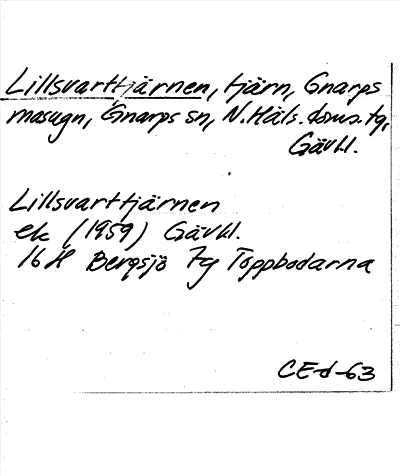 Lillsvarttjärnen, tjärn, Gnarps
masugn, Gnarps sn, N. Häls. doms. tg,
Gävl.
Lillsvarttjärnen
ek (1959) Gävl.
16 H Bergsjö 7g Toppbodarna
CE-d-63